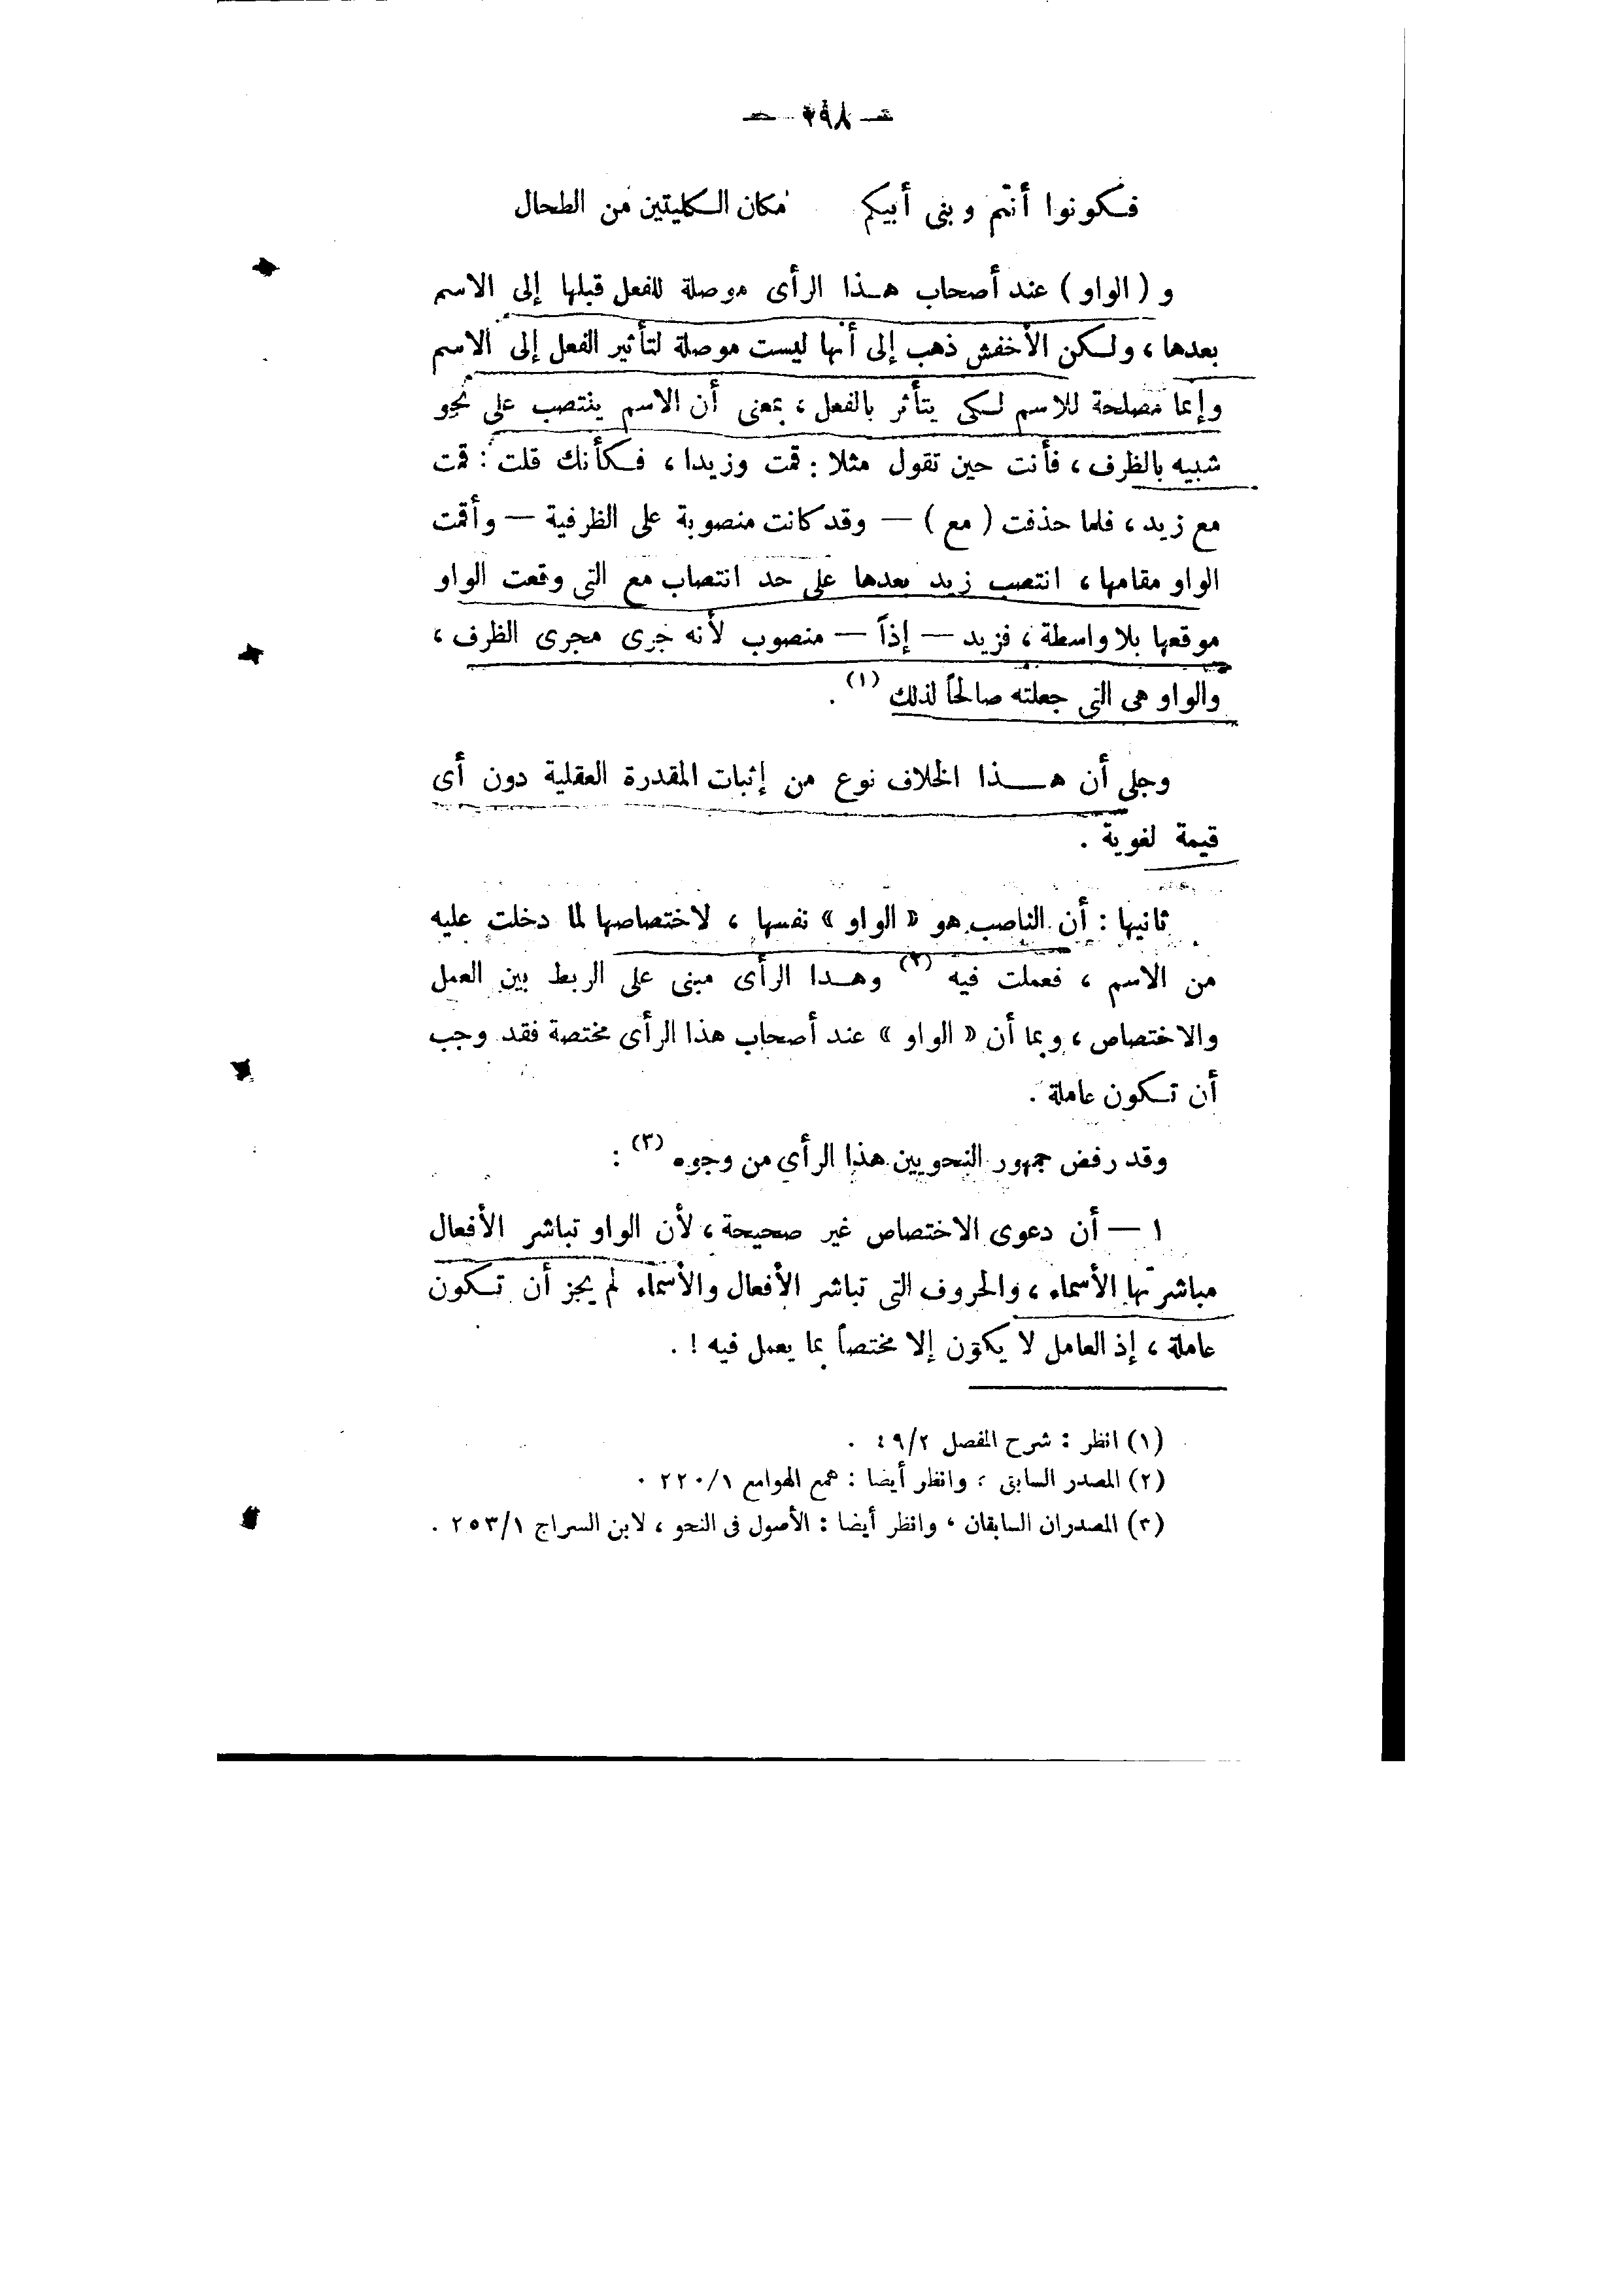 — ٢٩٨ —
فكونوا أنتم وبنى أبيكم مكان الكليتين من الطحال
و ( الواو ) عند أصحاب هذا الرأى موصلة للفعل قبلها إلى الاسم
بعدها ، ولكن الأخفش ذهب إلى أنها ليست موصلة لتأثير الفعل إلى الاسم
وإنما مصلحة للاسم لكى يتأثر بالفعل ، بمعنى أن الاسم ينتصب على نحو
شبيه بالظرف ، فأنت حين تقول مثلا : قمت وزيدا ، فكأنك قلت : قمت
مع زيد ، فلما حذفت ( مع ) — وقد كانت منصوبة على الظرفية — وأقمت
الواو مقامها ، انتصب زيد بعدها على حد انتصاب مع التى وقعت الواو
موقعها بلا واسطة ، فزيد — إذاً — منصوب لأنه جرى مجرى الظرف ،
والواو هى التى جعلته صالحاً لذلك (١) .
وجلى أن هذا الخلاف نوع من إثبات المقدرة العقلية دون أى
قيمة لغوية .
ثانيها : أن الناصب هو « الواو » نفسها ، لاختصاصها لما دخلت عليه
من الاسم ، فعملت فيه (٢) وهدا الرأى مبنى على الربط بين العمل
والاختصاص ، وبما أن « الواو » عند أصحاب هذا الرأى مختصة فقد وجب
أن تكون عاملة .
وقد رفض جمهور النحويين هذا الرأي من وجوه (٣) :
١ — أن دعوى الاختصاص غير صحيحة ، لأن الواو تباشر الأفعال
مباشرتها الأسماء ، والحروف التى تباشر الأفعال والأسماء لم يجز أن تكون
عاملة ، إذ العامل لا يكون إلا مختصاً بما يعمل فيه ! .
(١) انظر : شرح المفصل ٤٩/٢ .
(٢) المصدر السابق ؛ وانظر أيضا : همع الهوامع ٢٢٠/١ .
(٣) المصدران السابقان ، وانظر أيضا : الأصول فى النحو ، لابن السراج ٢٥٣/١ .